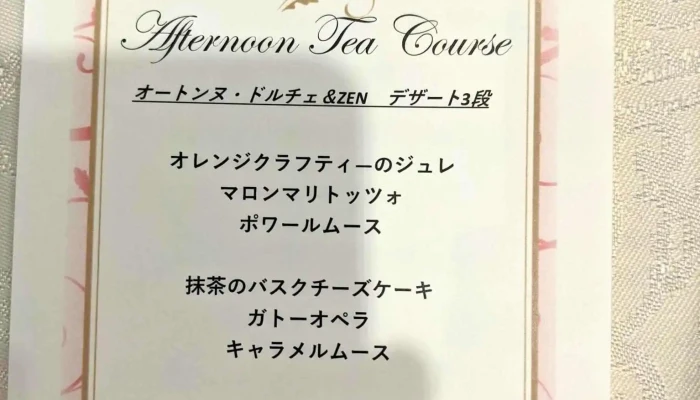 Afternoon Tea Course
オートンヌ・ドルチェ&ZEN　デザート3段
オレンジクラフティ―のジュレ
マロンマリトッツォ
ポワールムース
抹茶のバスクチーズケーキ
ガトーオペラ
キャラメルムース